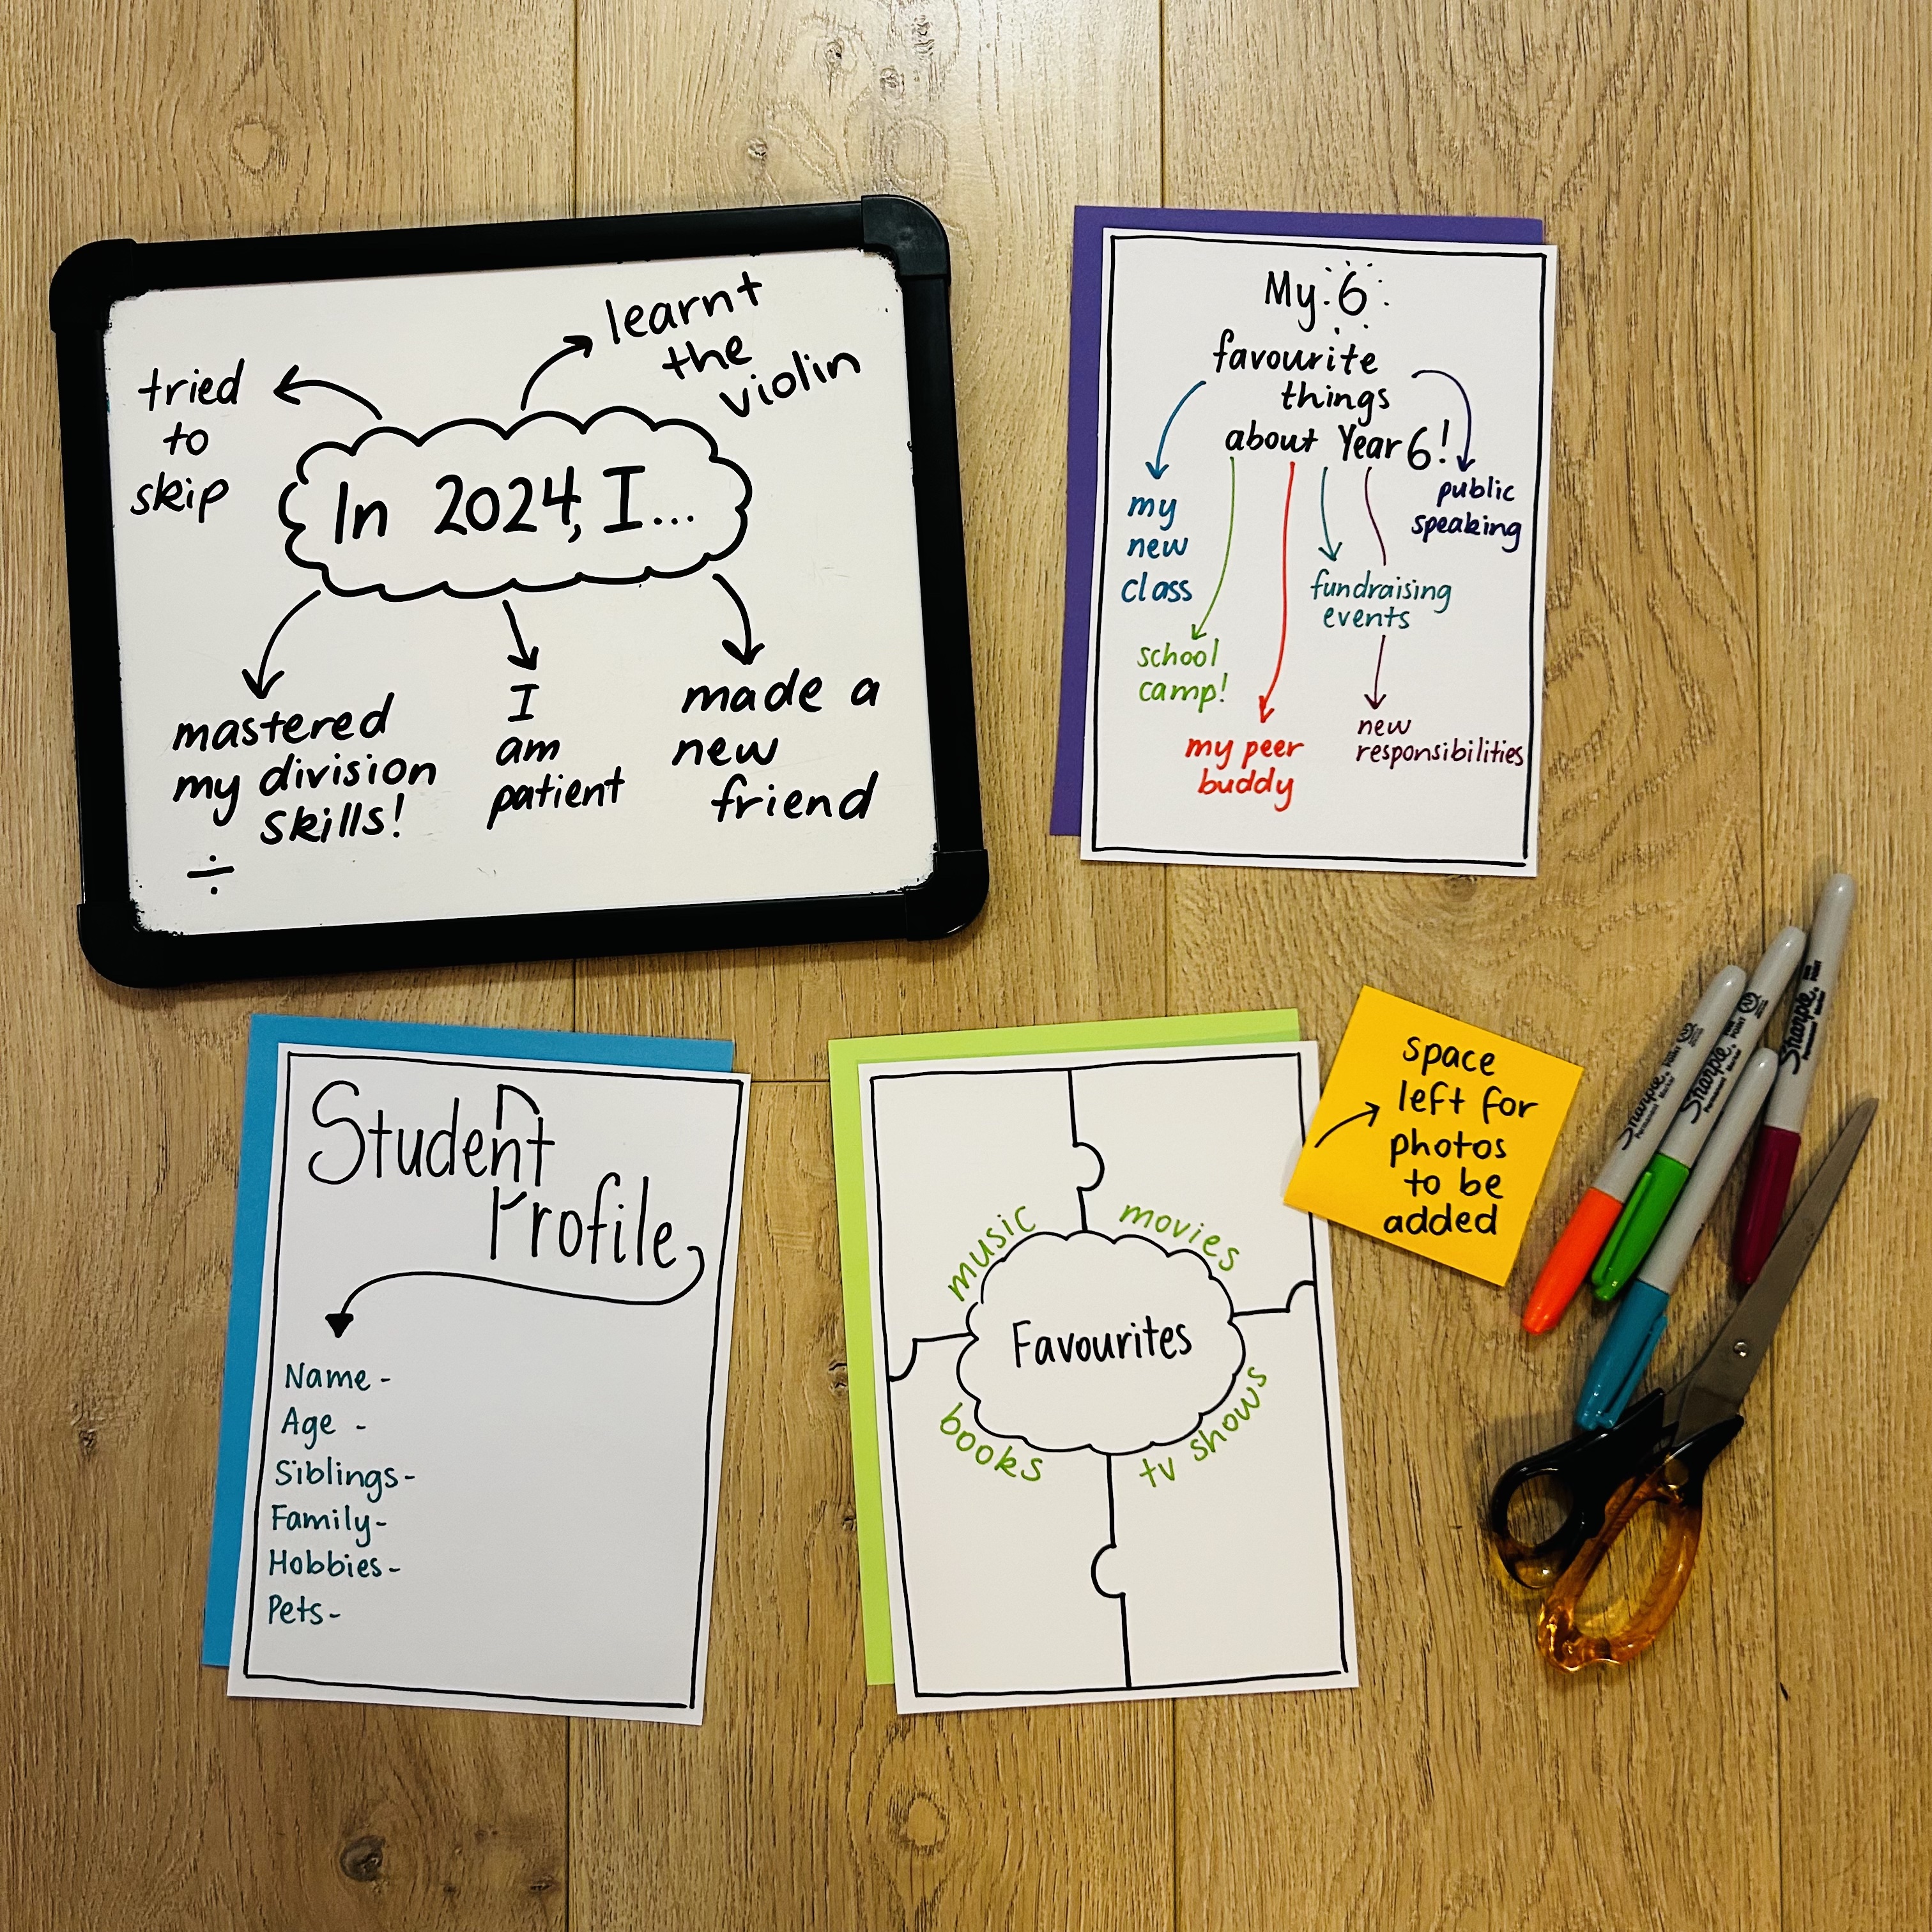 In 2024, I...
tried
to
skip
learnt
the
violin
mastered
my division
skills!
÷
I
am
patient
made a
new
friend
My 6
favourite
things
about Year 6!
my
new
class
school
camp!
my peer
buddy
fundraising
events
new
responsibilities
public
speaking
Student
Profile
Name -
Age -
Siblings-
Family-
Hobbies-
Pets-
Favourites
music
movies
books
tv shows
space
left for
photos
to be
added
Sharpie
Permanent Marker
Sharpie
Permanent Marker
FINE POINT
Sharpie
Permanent Marker
FINE POINT